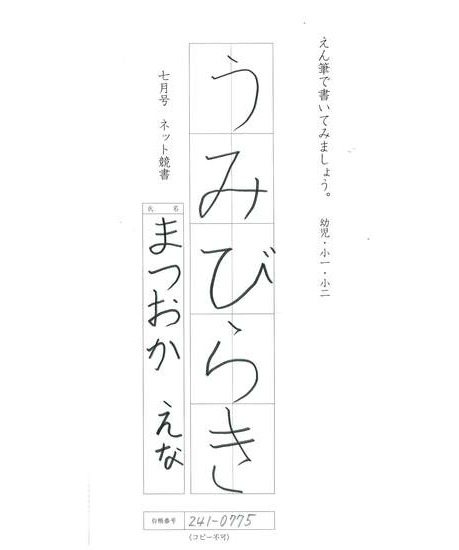 えん筆で書いてみましょう。　幼児・小一・小二
うみびらき
七月号　ネット競書
氏名
まつおか　えな
台帳番号 241-0775
(コピー不可)